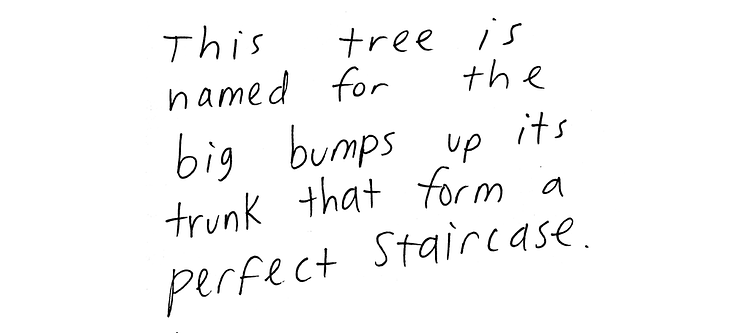 This tree is
named for the
big bumps up its
trunk that form a
perfect staircase.